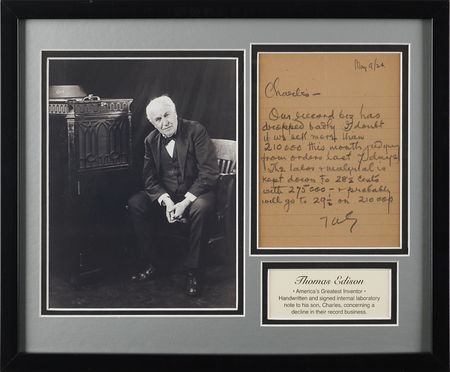 May
Charles—
Our record biz has
dropped badly I doubt
if we sell more than
210 000 this month judging
from orders last 7 days
The labor & material is
kept down to 28½ cents
with 275000 — & probably
will go to 29½ on 210000
Thomas Edison
• America's Greatest Inventor •
Handwritten and signed internal laboratory
note to his son, Charles, concerning a
decline in their record business.